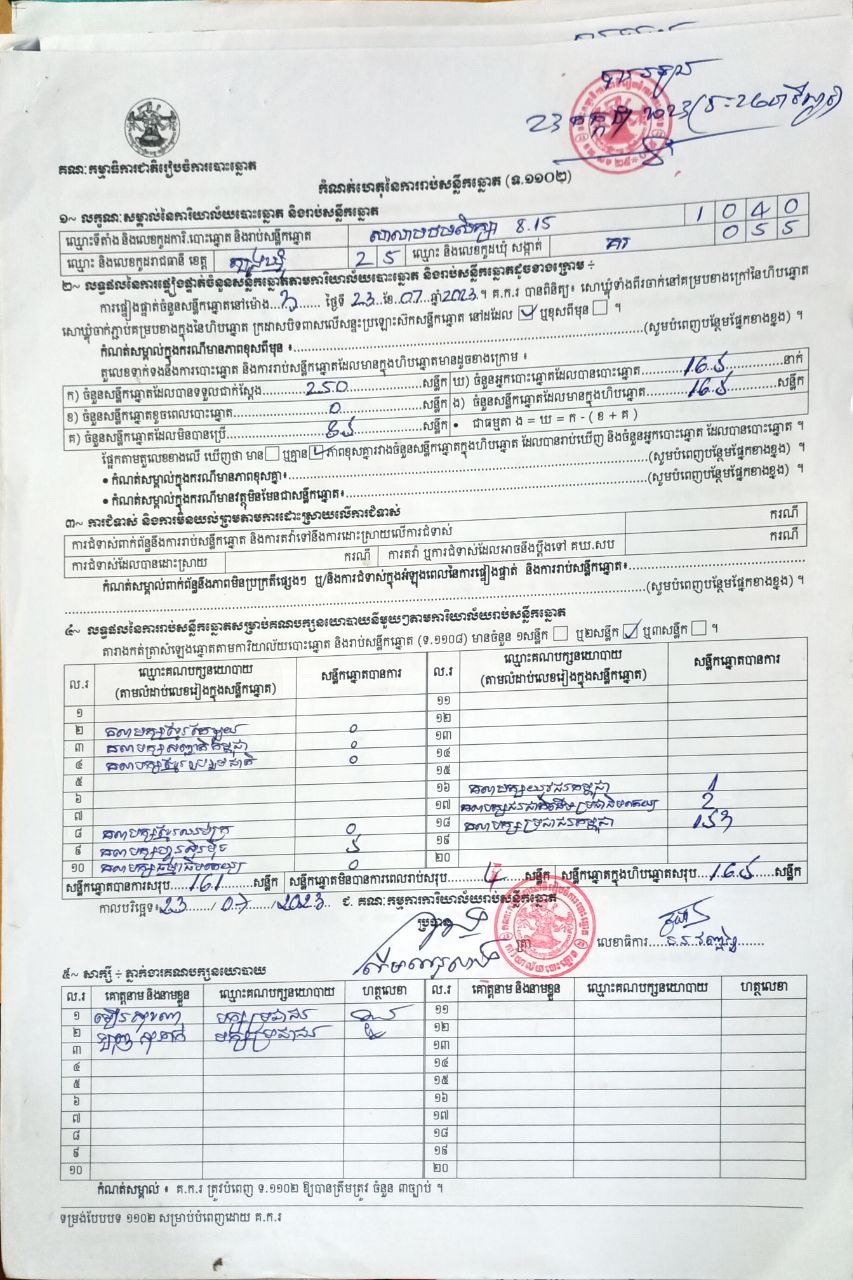 គណៈកម្មាធិការជាតិរៀបចំការបោះឆ្នោត
កំណត់ហេតុនៃការរាប់សន្លឹកឆ្នោត (ទ.១១០២)
១~ លក្ខណៈសម្គាល់នៃការិយាល័យបោះឆ្នោត និងរាប់សន្លឹកឆ្នោត
ឈ្មោះទីតាំង និងលេខកូដការិ.បោះឆ្នោត និងរាប់សន្លឹកឆ្នោត 1 0 4 0
ឈ្មោះ និងលេខកូដរាជធានី ខេត្ត 2 5 ឈ្មោះ និងលេខកូដឃុំ សង្កាត់ គរ 0 5 5
២~ លទ្ធផលនៃការផ្ទៀងផ្ទាត់ចំនួនសន្លឹកឆ្នោតតាមការិយាល័យបោះឆ្នោត និងរាប់សន្លឹកឆ្នោតដូចខាងក្រោម ÷
ការផ្ទៀងផ្ទាត់ចំនួនសន្លឹកឆ្នោតនៅម៉ោង ៣ ថ្ងៃទី 23 ខែ 07 ឆ្នាំ 2023 ។ គ.ក.រ បានពិនិត្យ៖ សោឃ្លុំទាំងពីរចាក់នៅគម្របខាងក្រៅនៃហិបឆ្នោត
សោឃ្លុំចាក់ភ្ជាប់គម្របខាងក្នុងនៃហិបឆ្នោត ក្រដាសបិទពាសលើសន្ទះប្រឡោះសិកសន្លឹកឆ្នោត នៅដដែល ឬខុសពីមុន ។
កំណត់សម្គាល់ក្នុងករណីមានភាពខុសពីមុន ៖ (សូមបំពេញបន្ថែមផ្នែកខាងខ្នង) ។
តួលេខទាក់ទងនឹងការបោះឆ្នោត និងការរាប់សន្លឹកឆ្នោតដែលមានក្នុងហិបឆ្នោតមានដូចខាងក្រោម ៖
ក) ចំនួនសន្លឹកឆ្នោតដែលបានទទួលជាក់ស្តែង 250 សន្លឹក ឃ) ចំនួនអ្នកបោះឆ្នោតដែលបានបោះឆ្នោត 165 នាក់
ខ) ចំនួនសន្លឹកឆ្នោតខូចពេលបោះឆ្នោត 0 សន្លឹក ង) ចំនួនសន្លឹកឆ្នោតដែលមានក្នុងហិបឆ្នោត 165 សន្លឹក
គ) ចំនួនសន្លឹកឆ្នោតដែលមិនបានប្រើ 85 សន្លឹក • ជាធម្មតា ង = ឃ = ក - ( ខ + គ )
ផ្អែកតាមតួលេខខាងលើ ឃើញថា មាន ឬគ្មាន ភាពខុសគ្នារវាងចំនួនសន្លឹកឆ្នោតក្នុងហិបឆ្នោត ដែលបានរាប់ឃើញ និងចំនួនអ្នកបោះឆ្នោត ដែលបានបោះឆ្នោត ។
• កំណត់សម្គាល់ក្នុងករណីមានភាពខុសគ្នា៖ (សូមបំពេញបន្ថែមផ្នែកខាងខ្នង) ។
• កំណត់សម្គាល់ក្នុងករណីមានវត្ថុមិនមែនជាសន្លឹកឆ្នោត៖ (សូមបំពេញបន្ថែមផ្នែកខាងខ្នង) ។
៣~ ការជំទាស់ និងការមិនយល់ព្រមតាមការដោះស្រាយលើការជំទាស់
ការជំទាស់ពាក់ព័ន្ធនឹងការរាប់សន្លឹកឆ្នោត និងការតវ៉ាទៅនឹងការដោះស្រាយលើការជំទាស់ ករណី
ការជំទាស់ដែលបានដោះស្រាយ ករណី ការតវ៉ា ឬការជំទាស់ដែលអាចនឹងប្តឹងទៅ គឃ.សប ករណី
កំណត់សម្គាល់ពាក់ព័ន្ធនឹងភាពមិនប្រក្រតីផ្សេងៗ ឬ/និងការជំទាស់ក្នុងអំឡុងពេលនៃការផ្ទៀងផ្ទាត់ និងការរាប់សន្លឹកឆ្នោត៖
(សូមបំពេញបន្ថែមផ្នែកខាងខ្នង) ។
៤~ លទ្ធផលនៃការរាប់សន្លឹកឆ្នោតសម្រាប់គណបក្សនយោបាយនីមួយៗតាមការិយាល័យរាប់សន្លឹកឆ្នោត
តារាងកត់ត្រាសំឡេងឆ្នោតតាមការិយាល័យបោះឆ្នោត និងរាប់សន្លឹកឆ្នោត (ទ.១១០៨) មានចំនួន ១សន្លឹក ឬ២សន្លឹក ឬ៣សន្លឹក ។
ល.រ ឈ្មោះគណបក្សនយោបាយ (តាមលំដាប់លេខរៀងក្នុងសន្លឹកឆ្នោត) សន្លឹកឆ្នោតបានការ ល.រ ឈ្មោះគណបក្សនយោបាយ (តាមលំដាប់លេខរៀងក្នុងសន្លឹកឆ្នោត) សន្លឹកឆ្នោតបានការ
១ ១១
២ 0 ១២
៣ គណបក្សសញ្ជាតិកម្ពុជា 0 ១៣
៤ គណបក្សខ្មែររួបរួមជាតិ 0 ១៤
៥ ១៥
៦ ១៦ គណបក្សយុវជនកម្ពុជា 1
៧ ១៧ 2
៨ 0 ១៨ គណបក្សប្រជាជនកម្ពុជា 153
៩ គណបក្សហ៊្វុនស៊ិនប៉ិច 5 ១៩
១០ គណបក្សធម្មាធិបតេយ្យ 0 ២០
សន្លឹកឆ្នោតបានការសរុប 161 សន្លឹក សន្លឹកឆ្នោតមិនបានការពេលរាប់សរុប 4 សន្លឹក សន្លឹកឆ្នោតក្នុងហិបឆ្នោតសរុប 165 សន្លឹក
កាលបរិច្ឆេទ៖ 23 / 07 / 2023 ជ. គណៈកម្មការការិយាល័យរាប់សន្លឹកឆ្នោត
ប្រធាន ត្រា លេខាធិការ
៥~ សាក្សី ÷ ភ្នាក់ងារគណបក្សនយោបាយ
ល.រ គោត្តនាម និងនាមខ្លួន ឈ្មោះគណបក្សនយោបាយ ហត្ថលេខា ល.រ គោត្តនាម និងនាមខ្លួន ឈ្មោះគណបក្សនយោបាយ ហត្ថលេខា
១ បក្សប្រជាជន ១១
២ បក្សប្រជាជន ១២
៣ ១៣
៤ ១៤
៥ ១៥
៦ ១៦
៧ ១៧
៨ ១៨
៩ ១៩
១០ ២០
កំណត់សម្គាល់ ៖ គ.ក.រ ត្រូវបំពេញ ទ.១១០២ ឱ្យបានត្រឹមត្រូវ ចំនួន ៣ច្បាប់ ។
ទម្រង់បែបបទ ១១០២ សម្រាប់បំពេញដោយ គ.ក.រ